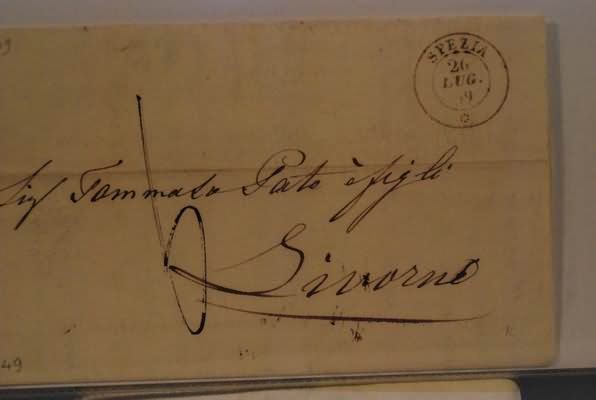 SPEZIA
26
LUG.
49
Sig Tommaso Pato è figli
Livorno
49